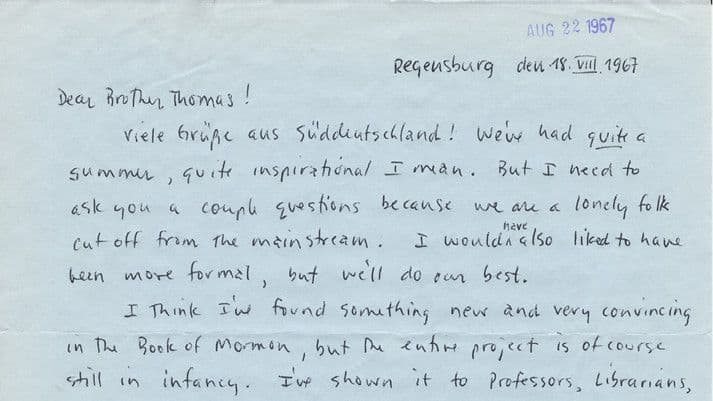 AUG 22 1967
Regensburg den 18. VIII. 1967
Dear Brother Thomas!
Viele Grüße aus Süddeutschland! We've had quite a
summer, quite inspirational I mean. But I need to
ask you a couple questions because we are a lonely folk
cut off from the mainstream. I would have also liked to have
been more formal, but we'll do our best.
I think I've found something new and very convincing
in the Book of Mormon, but the entire project is of course
still in infancy. I've shown it to Professors, Librarians,